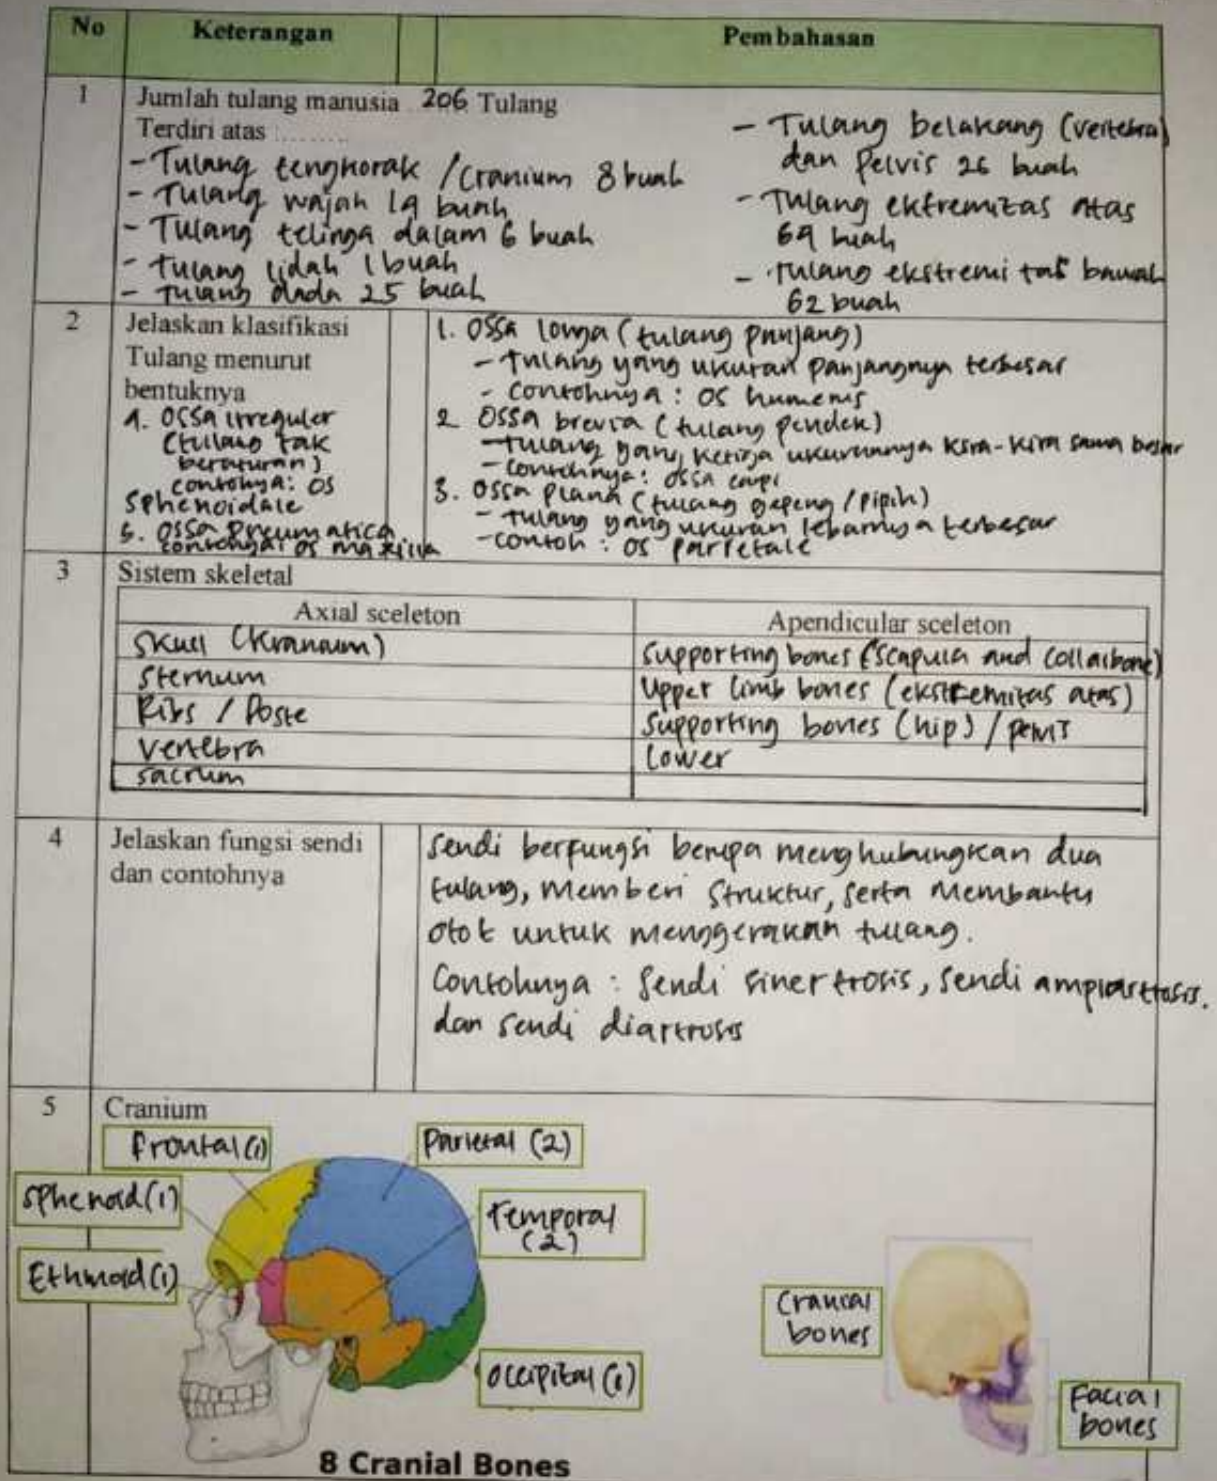 No Keterangan Pembahasan
1 Jumlah tulang manusia 206 Tulang
Terdiri atas ..........
- Tulang tengkorak / Cranium 8 buah
- Tulang wajah 14 buah
- Tulang telinga dalam 6 buah
- Tulang lidah 1 buah
- Tulang dada 25 buah
- Tulang belakang (vertebra)
dan Pelvis 26 buah
- Tulang ekstremitas atas
64 buah
- Tulang ekstremitas bawah
62 buah
2 Jelaskan klasifikasi
Tulang menurut
bentuknya
4. Ossa irreguler
(tulang tak
beraturan)
contohya: OS
Sphenoidale
5. Ossa Pneumatica
contohnya: os maxilla
1. Ossa longa (tulang panjang)
- Tulang yang ukuran panjangnya terbesar
- Contohnya : OS humerus
2 Ossa brevia (tulang pendek)
- Tulang yang ketiga ukurannya kira-kira sama besar
- Contohnya: ossa carpi
3. Ossa plana (tulang gepeng / pipih)
- Tulang yang ukuran lebarnya terbesar
- contoh : os parietale
3 Sistem skeletal
Axial sceleton Apendicular sceleton
Skull (Kranaum) Supporting bones (scapula and collarbone)
Sternum Upper limb bones (ekstremitas atas)
Ribs / Supporting bones (hip) /
Vertebra Lower
Sacrum
4 Jelaskan fungsi sendi
dan contohnya
Sendi berfungsi berupa menghubungkan dua
tulang, memberi struktur, serta membantu
otot untuk menggerakan tulang.
Contohnya : Sendi sinertrosis, sendi ampiartrosis.
dan sendi diartrosis
5 Cranium
Frontal (1)
Parietal (2)
Sphenoid (1)
Temporal
(2)
Ethmoid (1)
Occipital (1)
Cranial
bones
Facial
bones
8 Cranial Bones